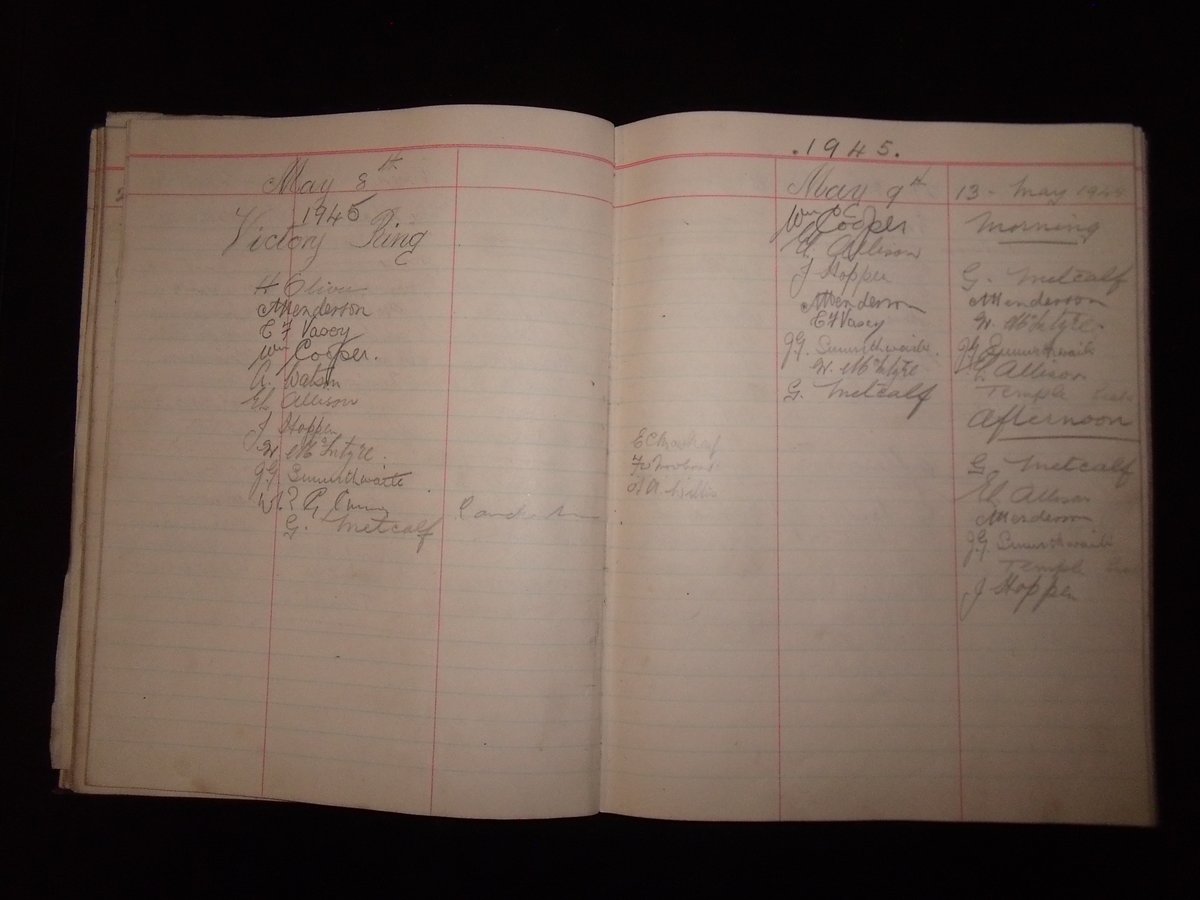 May 8th
1945
Victory Ring
H Oliver
A Henderson
E F Vasey
Wm Cooper.
A. Watson
E Allison
J Hopper
W. McIntyre.
J.G. Smurthwaite
G. Metcalf
.1945.
May 9th
Wm Cooper
E Allison
J Hopper
A Henderson
E F Vasey
J.G. Smurthwaite.
W. McIntyre
G. Metcalf
13 - May 1945
Morning
G. Metcalf
A Henderson
W. McIntyre.
J.G. Smurthwaite
E Allison
Temple
Afternoon
G Metcalf
E Allison
A Henderson
J.G. Smurthwaite
Temple
J Hopper